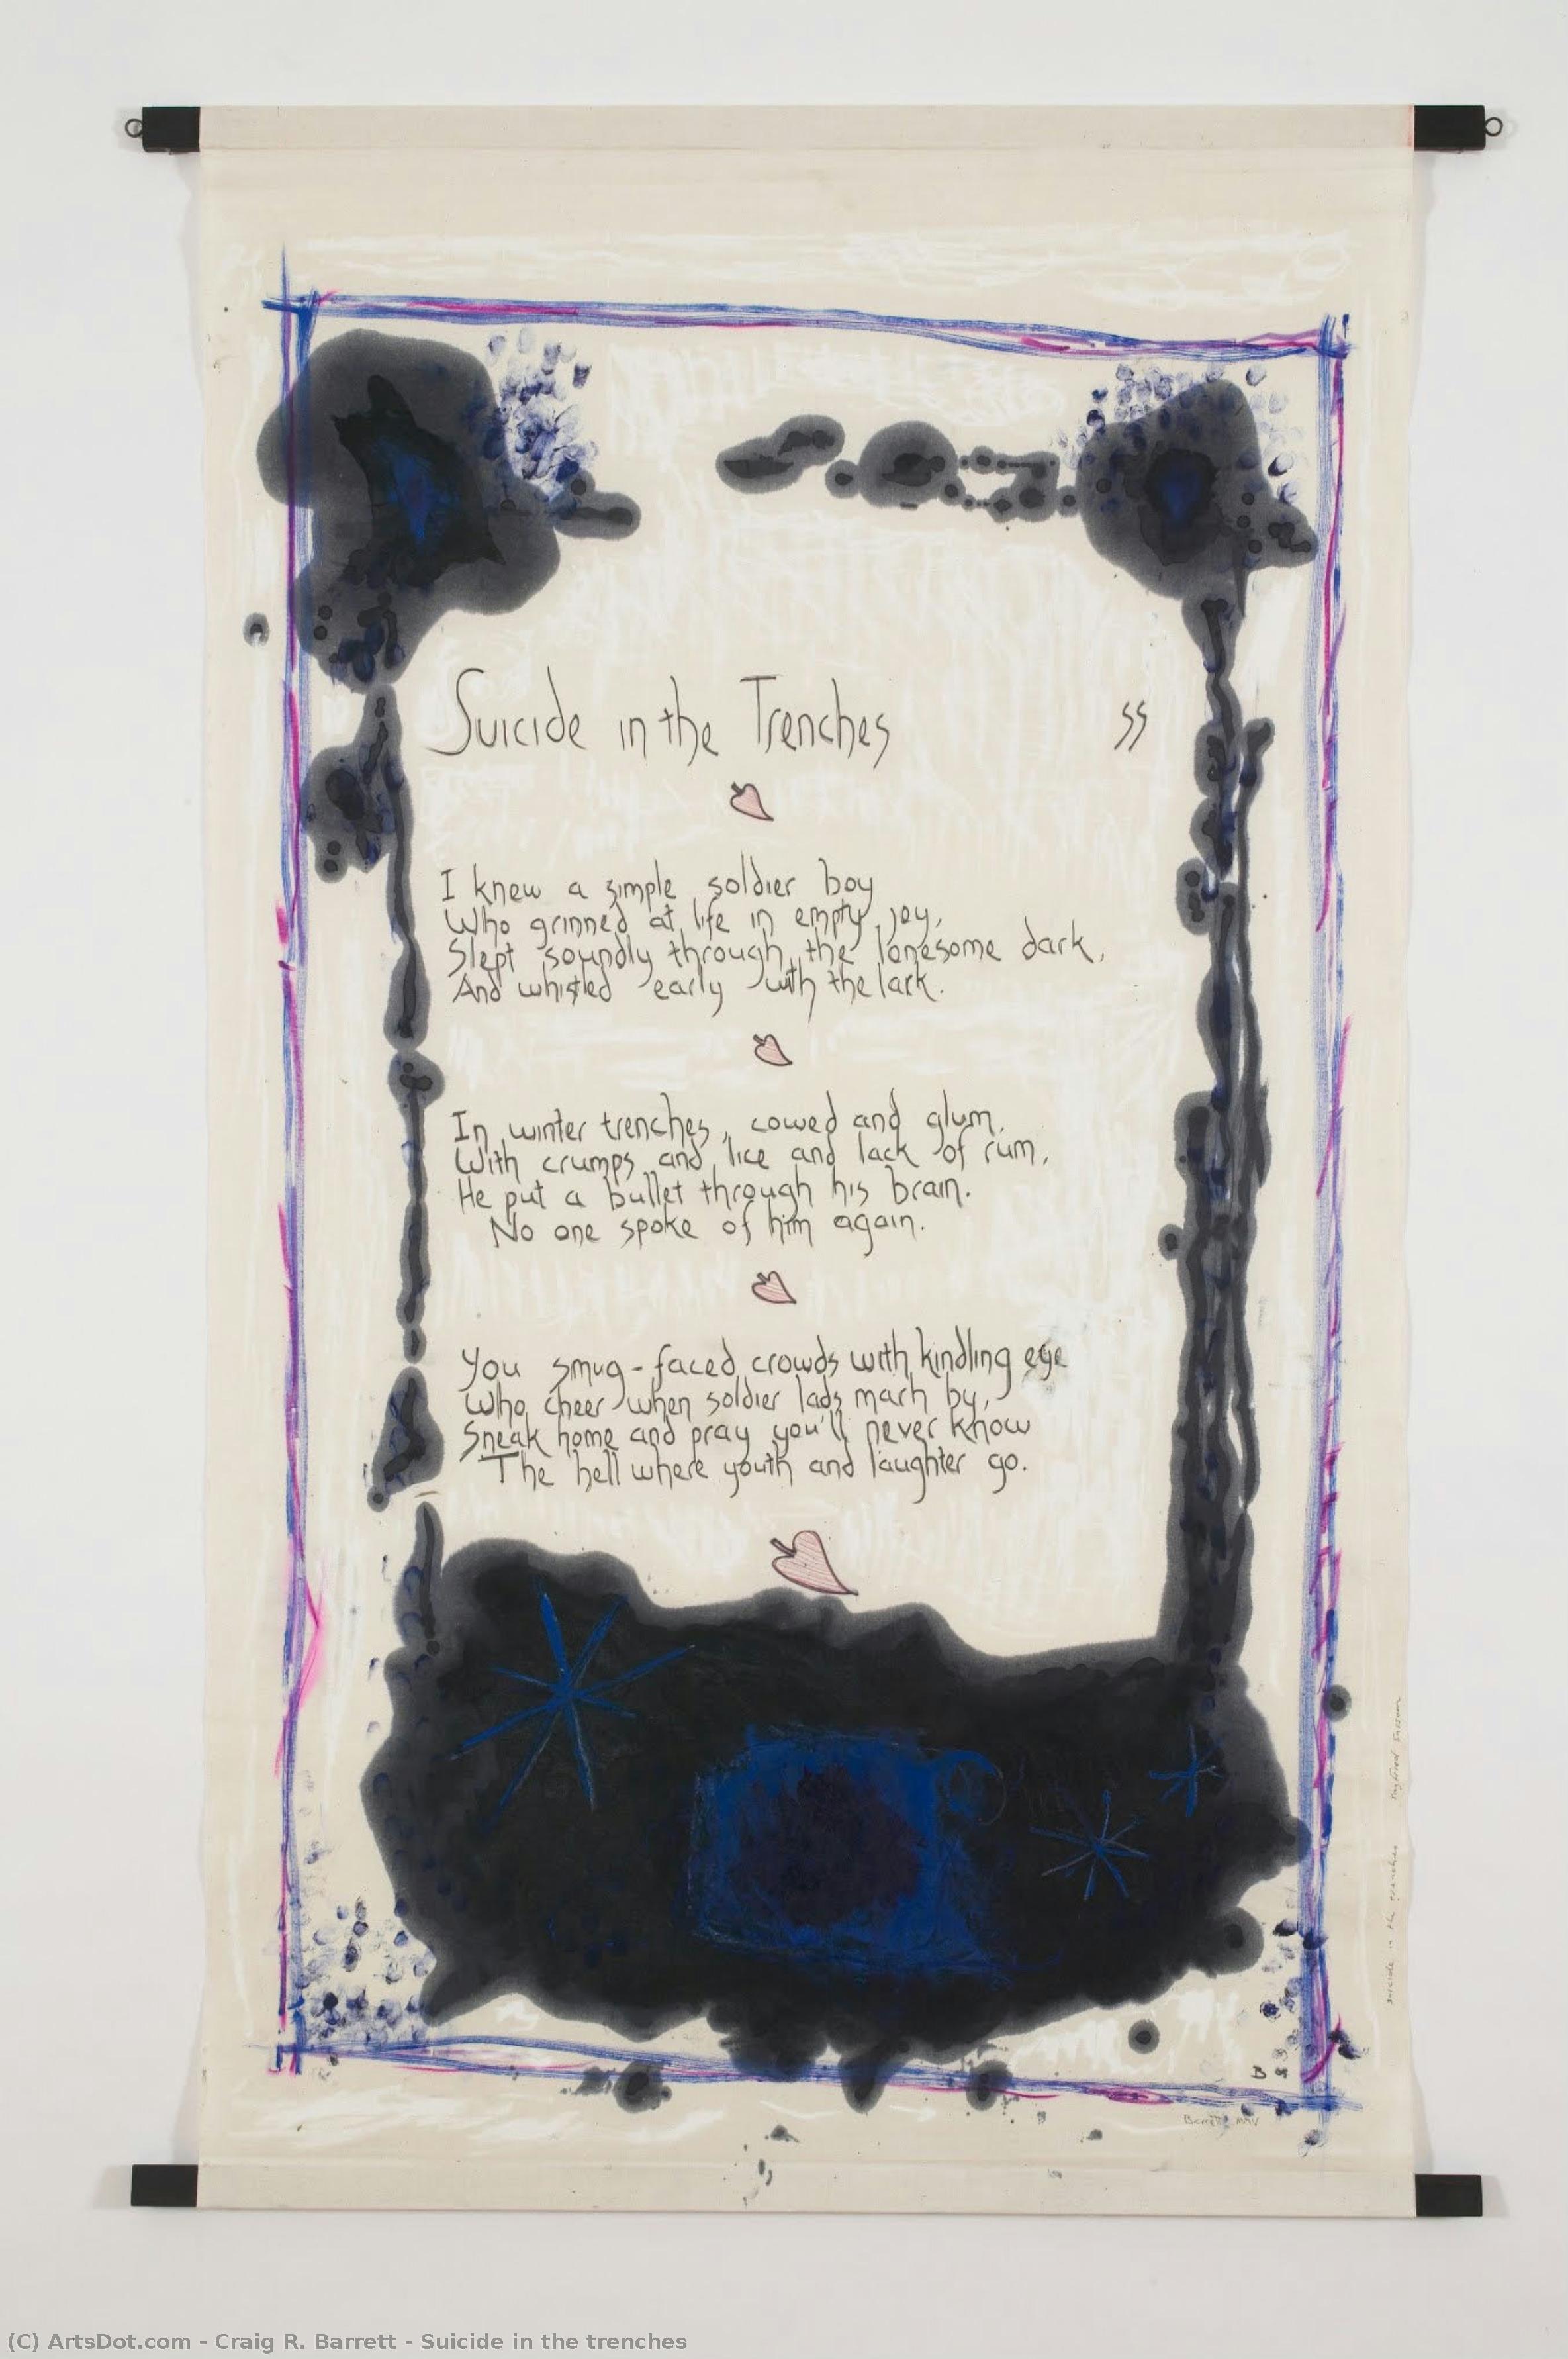 Suicide in the Trenches SS
I knew a simple soldier boy
Who grinned at life in empty joy,
Slept soundly through the lonesome dark,
And whistled early with the lark.
In winter trenches, cowed and glum,
With crumps and lice and lack of rum,
He put a bullet through his brain.
No one spoke of him again.
You smug-faced crowds with kindling eye
Who cheer when soldier lads march by,
Sneak home and pray you'll never know
The hell where youth and laughter go.
suicide in the trenches Siegfried Sassoon
Barrett
(C) ArtsDot.com - Craig R. Barrett - Suicide in the trenches